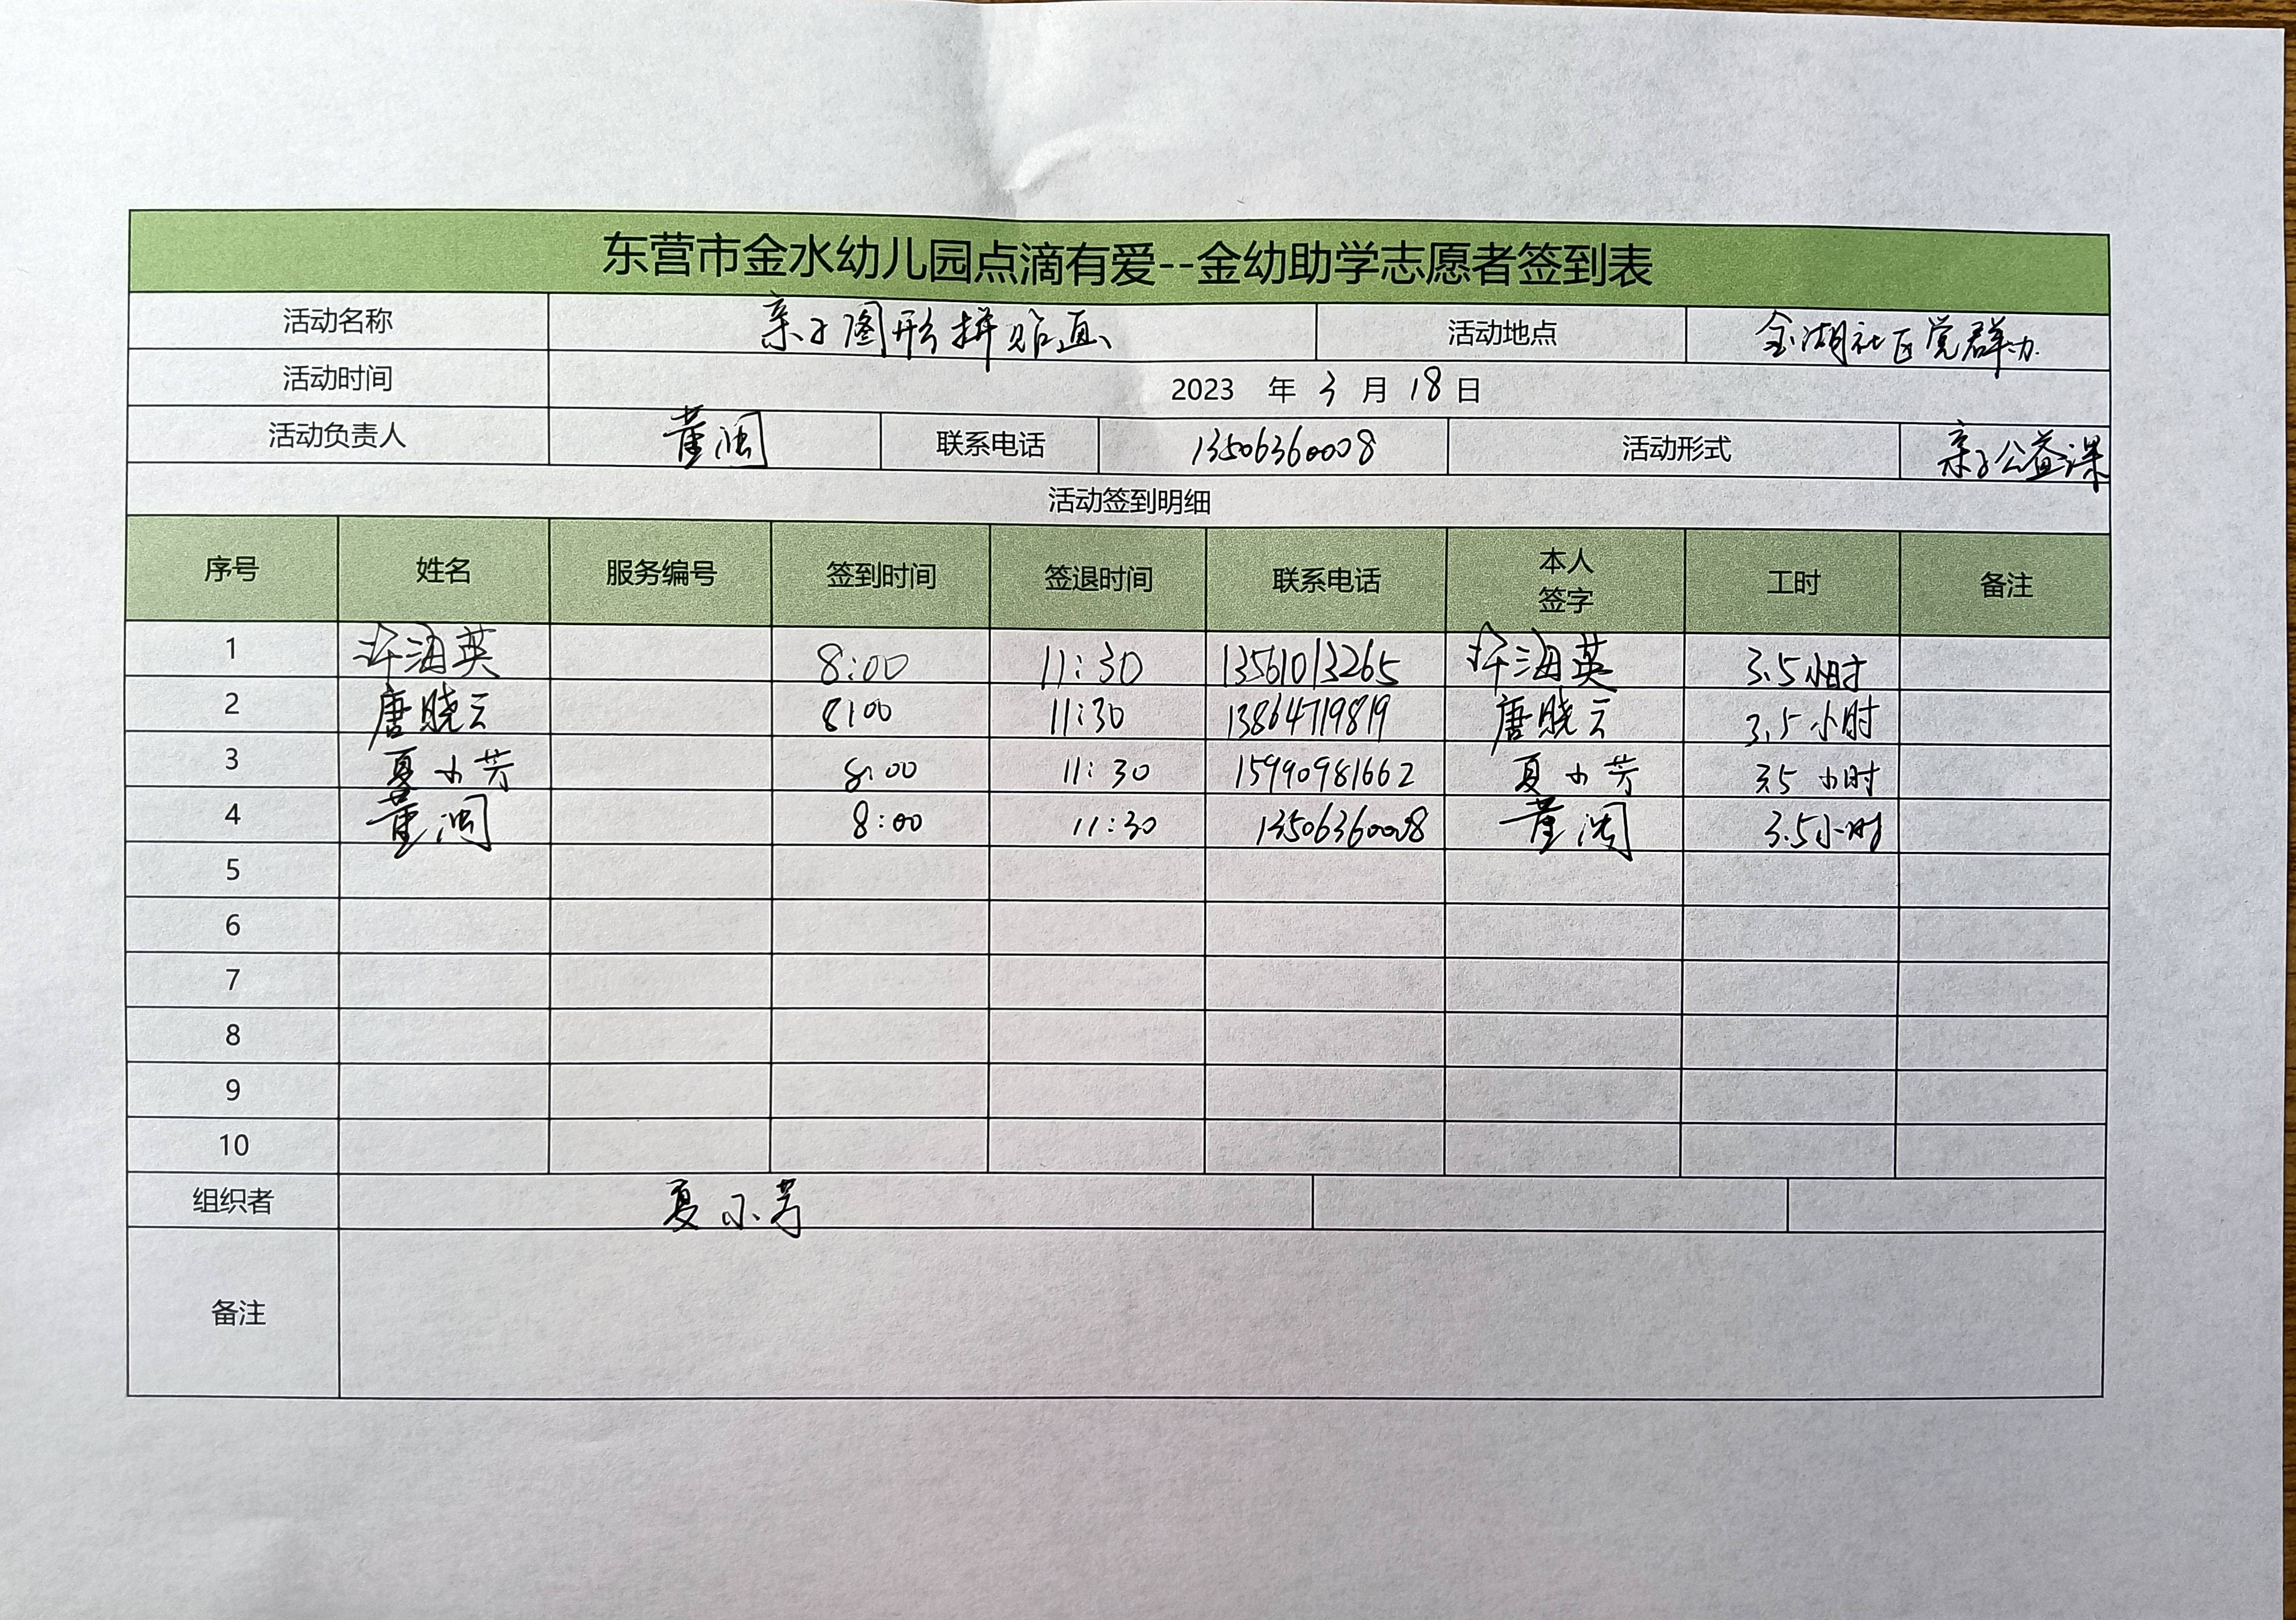 东营市金水幼儿园点滴有爱--金幼助学志愿者签到表
活动名称 亲子图形拼贴画 活动地点 金湖社区党群办
活动时间 2023 年 3 月 18 日
活动负责人 董闽 联系电话 13506360008 活动形式 亲子公益课
活动签到明细
序号 姓名 服务编号 签到时间 签退时间 联系电话 本人签字 工时 备注
1 许海英 8:00 11:30 13561013265 许海英 3.5小时
2 唐晓云 8:00 11:30 13864719819 唐晓云 3.5小时
3 夏小芳 8:00 11:30 15990981662 夏小芳 3.5小时
4 董 8:00 11:30 13506360008 董 3.5小时
5
6
7
8
9
10
组织者 夏小芳
备注